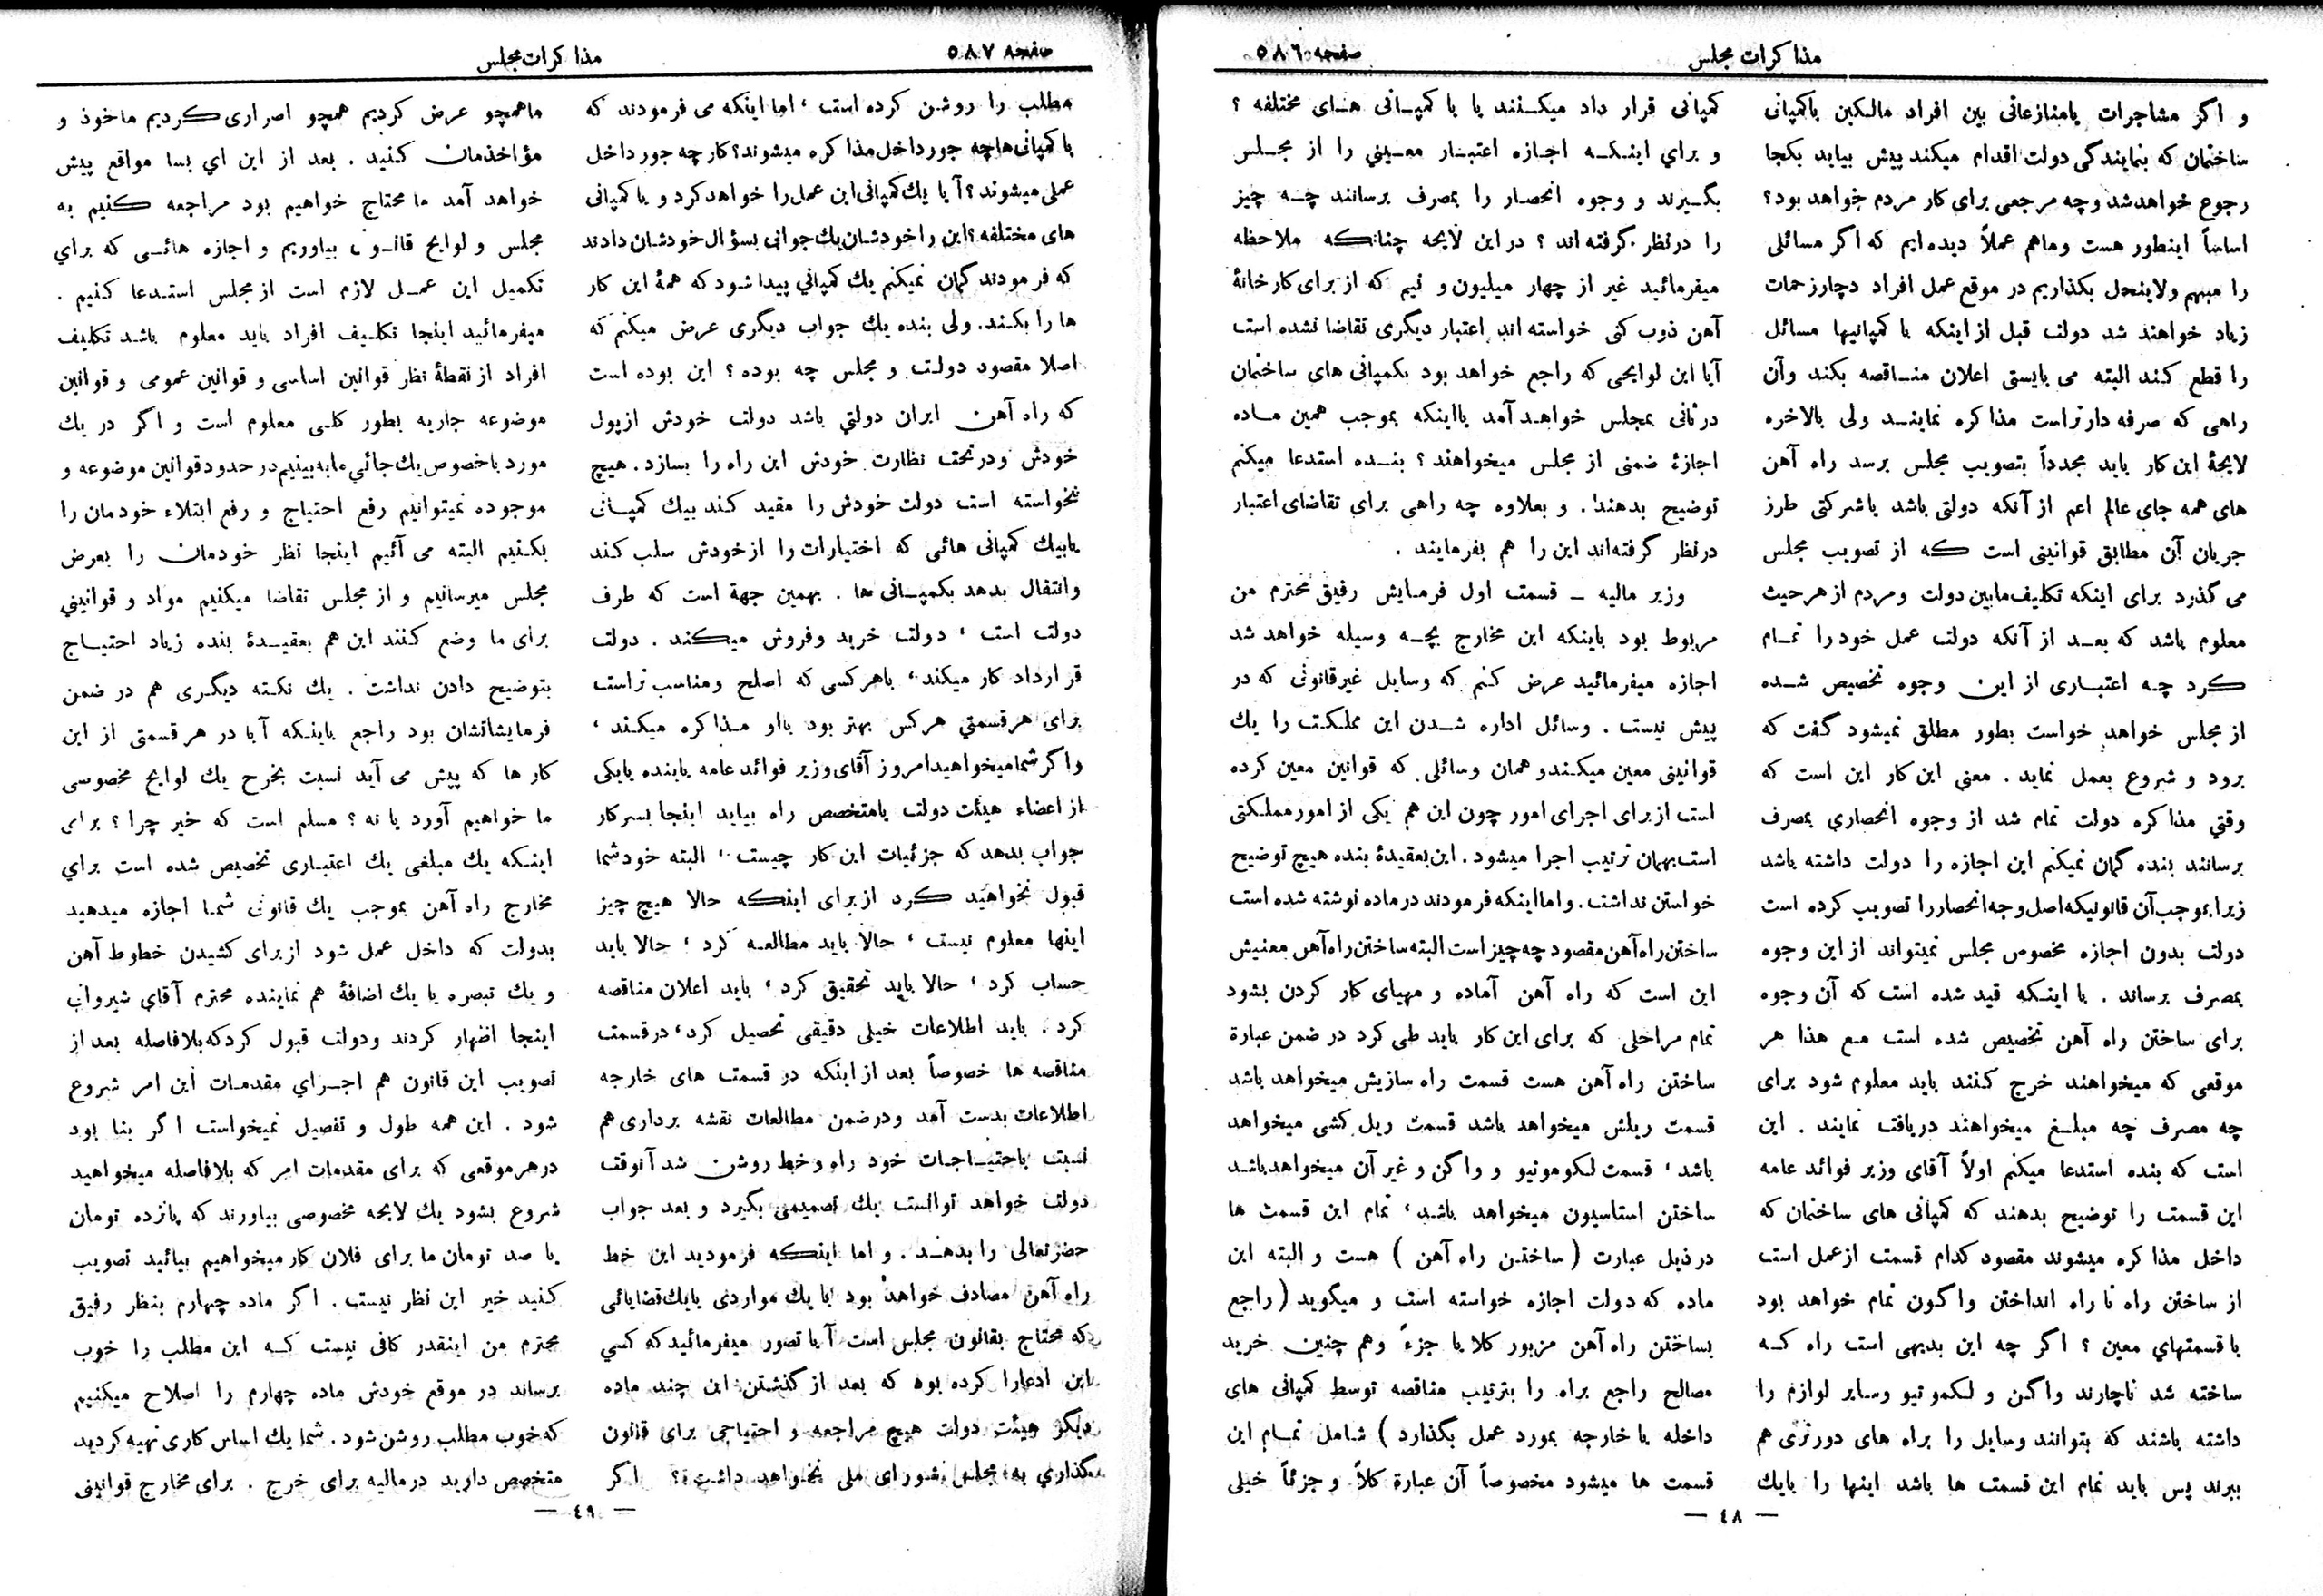 مذاکرات مجلس
صفحه ۵۸٦
و اگر مشاجرات یامنازعاتی بین افراد مالکین یاکمپانی
ساختمان که بنمایندگی دولت اقدام میکند پیش بیاید بکجا
رجوع خواهدشد وچه مرجعی برای کار مردم خواهد بود؟
اساساً اینطور هست وماهم عملاً دیده ایم که اگر مسائلی
را مبهم ولاینحل بگذاریم در موقع عمل افراد دچارزحمات
زیاد خواهند شد دولت قبل از اینکه با کمپانیها مسائل
را قطع کند البته می بایستی اعلان مناقصه بکند وآن
راهی که صرفه دارتراست مذاکره نمایند ولی بالاخره
لایحهٔ این کار باید مجدداً بتصویب مجلس برسد راه آهن
های همه جای عالم اعم از آنکه دولتی باشد یاشرکتی طرز
جریان آن مطابق قوانینی است که از تصویب مجلس
می گذرد برای اینکه تکلیف مابین دولت ومردم از هرحیث
معلوم باشد که بعد از آنکه دولت عمل خود را تمام
کرد چه اعتباری از این وجوه تخصیص شده
از مجلس خواهد خواست بطور مطلق نمیشود گفت که
برود و شروع بعمل نماید . معنی این کار این است که
وقتي مذاکره دولت تمام شد از وجوه انحصاري بمصرف
برسانند بنده گمان نمیکنم این اجازه را دولت داشته باشد
زیرا بموجب آن قانونیکه اصل وجه انحصاررا تصویب کرده است
دولت بدون اجازه مخصوص مجلس نمیتواند از این وجوه
بمصرف برساند . با اینکه قید شده است که آن وجوه
برای ساختن راه آهن تخصیص شده است مع هذا هر
موقعی که میخواهند خرج کنند باید معلوم شود برای
چه مصرف چه مبلغ میخواهند دریافت نمایند . این
است که بنده استدعا میکنم اولاً آقای وزیر فوائد عامه
این قسمت را توضیح بدهند که کمپانی های ساختمان که
داخل مذاکره میشوند مقصود کدام قسمت ازعمل است
از ساختن راه تا راه انداختن واگون تمام خواهد بود
یا قسمتهاي معین ؟ اگر چه این بدیهی است راه که
ساخته شد ناچارند واگن و لکموتیو وسایر لوازم را
داشته باشند که بتوانند وسایل را براه های دورتری هم
ببرند پس باید تمام این قسمت ها باشد اینها را بایك
کمپانی قرار داد میکنند یا با کمپانی های مختلفه ؟
و براي اینکه اجازه اعتبار معیني را از مجلس
بگیرند و وجوه انحصار را بمصرف برسانند چه چیز
را درنظر گرفته اند ؟ در این لایحه چنانکه ملاحظه
میفرمائید غیر از چهار میلیون و نیم که از برای کارخانهٔ
آهن ذوب کنی خواسته اند اعتبار دیگری تقاضا نشده است
آیا این لوایحی که راجع خواهد بود بکمپانی های ساختمان
درثانی بمجلس خواهد آمد یااینکه بموجب همین ماده
اجازهٔ ضمنی از مجلس میخواهند ؟ بنده استدعا میکنم
توضیح بدهند . و بعلاوه چه راهی برای تقاضای اعتبار
درنظر گرفته‌اند این را هم بفرمایند .
وزیر مالیه ــ قسمت اول فرمایش رفیق محترم من
مربوط بود باینکه این مخارج بچه وسیله خواهد شد
اجازه میفرمائید عرض کنم که وسایل غیرقانونی که در
پیش نیست . وسائل اداره شدن این مملکت را یك
قوانینی معین میکند و همان وسائلی که قوانین معین کرده
است از برای اجرای امور چون این هم یکی از امور مملکتی
است بهمان ترتیب اجرا میشود . این بعقیدهٔ بنده هیچ توضیح
خواستن نداشت . واما اینکه فرمودند درماده نوشته شده است
ساختن راه آهن مقصود چه چیز است البته ساختن راه آهن معنیش
این است که راه آهن آماده و مهیای کار کردن بشود
تمام مراحلی که برای این کار باید طی کرد در ضمن عبارة
ساختن راه آهن هست قسمت راه سازیش میخواهد باشد
قسمت ریلش میخواهد باشد قسمت ریل کشی میخواهد
باشد ، قسمت لکوموتیو و واگن و غیر آن میخواهد باشد
ساختن استاسیون میخواهد باشد ، تمام این قسمت ها
در ذیل عبارت ( ساختن راه آهن ) هست و البته این
ماده که دولت اجازه خواسته است و میگوید ( راجع
بساختن راه آهن مزبور کلا یا جزءً وهم چنین خرید
مصالح راجع براه را بترتیب مناقصه توسط کمپانی های
داخله یا خارجه بمورد عمل بگذارد ) شامل تمام این
قسمت ها میشود مخصوصاً آن عبارة کلاً و جزئاً خیلی
— ٤٨ —
صفحه ۵۸۷
مذاکرات مجلس
مطلب را روشن کرده است ، اما اینکه می فرمودند که
با کمپانی ها چه جور داخل مذاکره میشوند؟ کار چه جور داخل
عملی میشوند ؟ آیا یك کمپانی این عمل را خواهد کرد و یا کمپانی
های مختلفه ؟ این را خودشان یك جوابی بسؤال خودشان دادند
که فرمودند گمان نمیکنم یك کمپاني پیدا شود که همهٔ این کار
ها را بکند. ولی بنده یك جواب دیگری عرض میکنم که
اصلا مقصود دولت و مجلس چه بوده ؟ این بوده است
که راه آهن ایران دولتي باشد دولت خودش ازپول
خودش ودرتحت نظارت خودش این راه را بسازد. هیچ
نخواسته است دولت خودش را مقید کند بیك کمپانی
یابیك کمپانی هائی که اختیارات را از خودش سلب کند
وانتقال بدهد بکمپانی ها . بهمین جهة است که طرف
دولت است ، دولت خرید وفروش میکند . دولت
قرارداد کار میکند ، باهر کسی که اصلح ومناسب تر است
برای هرقسمتي هرکس بهتر بود بااو مذاکره میکند ،
و اگر شما میخواهید امروز آقای وزیر فوائد عامه یا بنده یا یکی
از اعضاء هیئت دولت یا متخصص راه بیاید اینجا بسرکار
جواب بدهد که جزئیات این کار چیست ، البته خود شما
قبول نخواهید کرد از برای اینکه حالا هیچ چیز
اینها معلوم نیست ، حالا باید مطالعه کرد ، حالا باید
حساب کرد ، حالا باید تحقیق کرد ، باید اعلان مناقصه
کرد . باید اطلاعات خیلی دقیقی تحصیل کرد ، درقسمت
مناقصه ها خصوصاً بعد از اینکه در قسمت های خارجه
اطلاعات بدست آمد ودرضمن مطالعات نقشه برداری هم
نسبت باحتیاجات خود راه و خط روشن شد آنوقت
دولت خواهد توانست یك تصمیمی بگیرد و بعد جواب
حضرتعالی را بدهد . و اما اینکه فرمودید این خط
راه آهن مصادف خواهد بود با یك مواردی یا یك قضایائی
که محتاج بقانون مجلس است آیا تصور میفرمائید که کسي
این ادعارا کرده بود که بعد از گذشتن این چند ماده
دیگر هیئت دولت هیچ مراجعه و احتیاجی برای قانون
گذاري به مجلس شورای ملی نخواهد داشت ؟ اگر
ماهمچو عرض کردیم همچو اصراری کردیم ماخوذ و
مؤاخذمان کنید . بعد از این اي بسا مواقع پیش
خواهد آمد ما محتاج خواهیم بود مراجعه کنیم به
مجلس و لوایح قانونی بیاوریم و اجازه هائی که براي
تکمیل این عمل لازم است از مجلس استدعا کنیم .
میفرمائید اینجا تکلیف افراد باید معلوم باشد تکلیف
افراد از نقطهٔ نظر قوانین اساسی و قوانین عمومی و قوانین
موضوعه جاریه بطور کلی معلوم است و اگر در یك
مورد باخصوص یك جائي ما به بینیم در حدود قوانین موضوعه و
موجوده نمیتوانیم رفع احتیاج و رفع ابتلاء خودمان را
بکنیم البته می آئیم اینجا نظر خودمان را بعرض
مجلس میرسانیم و از مجلس تقاضا میکنیم مواد و قوانیني
برای ما وضع کنند این هم بعقیدهٔ بنده زیاد احتیاج
بتوضیح دادن نداشت . یك نکته دیگری هم در ضمن
فرمایشاتشان بود راجع باینکه آیا در هر قسمتی از این
کارها که پیش می آید نسبت بخرج یك لوایح مخصوصی
ما خواهیم آورد یا نه ؟ مسلم است که خیر چرا ؟ برای
اینکه یك مبلغی یك اعتباری تخصیص شده است براي
مخارج راه آهن بموجب یك قانونی شما اجازه میدهید
بدولت که داخل عمل شود از برای کشیدن خطوط آهن
و یك تبصره یا یك اضافهٔ هم نماینده محترم آقای شیروانی
اینجا اظهار کردند ودولت قبول کرد که بلافاصله بعد از
تصویب این قانون هم اجراي مقدمات این امر شروع
شود . این همه طول و تفصیل نمیخواست اگر بنا بود
در هر موقعی که برای مقدمات امر که بلافاصله میخواهید
شروع بشود یك لایحه مخصوصی بیاورند که پانزده تومان
یا صد تومان ما برای فلان کار میخواهیم بیائید تصویب
کنید خیر این نظر نیست . اگر ماده چهارم بنظر رفیق
محترم من اینقدر کافی نیست که این مطلب را خوب
برساند در موقع خودش ماده چهارم را اصلاح میکنیم
که خوب مطلب روشن شود . شما یك اساس کاری تهیه کردید
متخصص دارید درمالیه برای خرج . برای مخارج قوانینی
— ٤٩ —